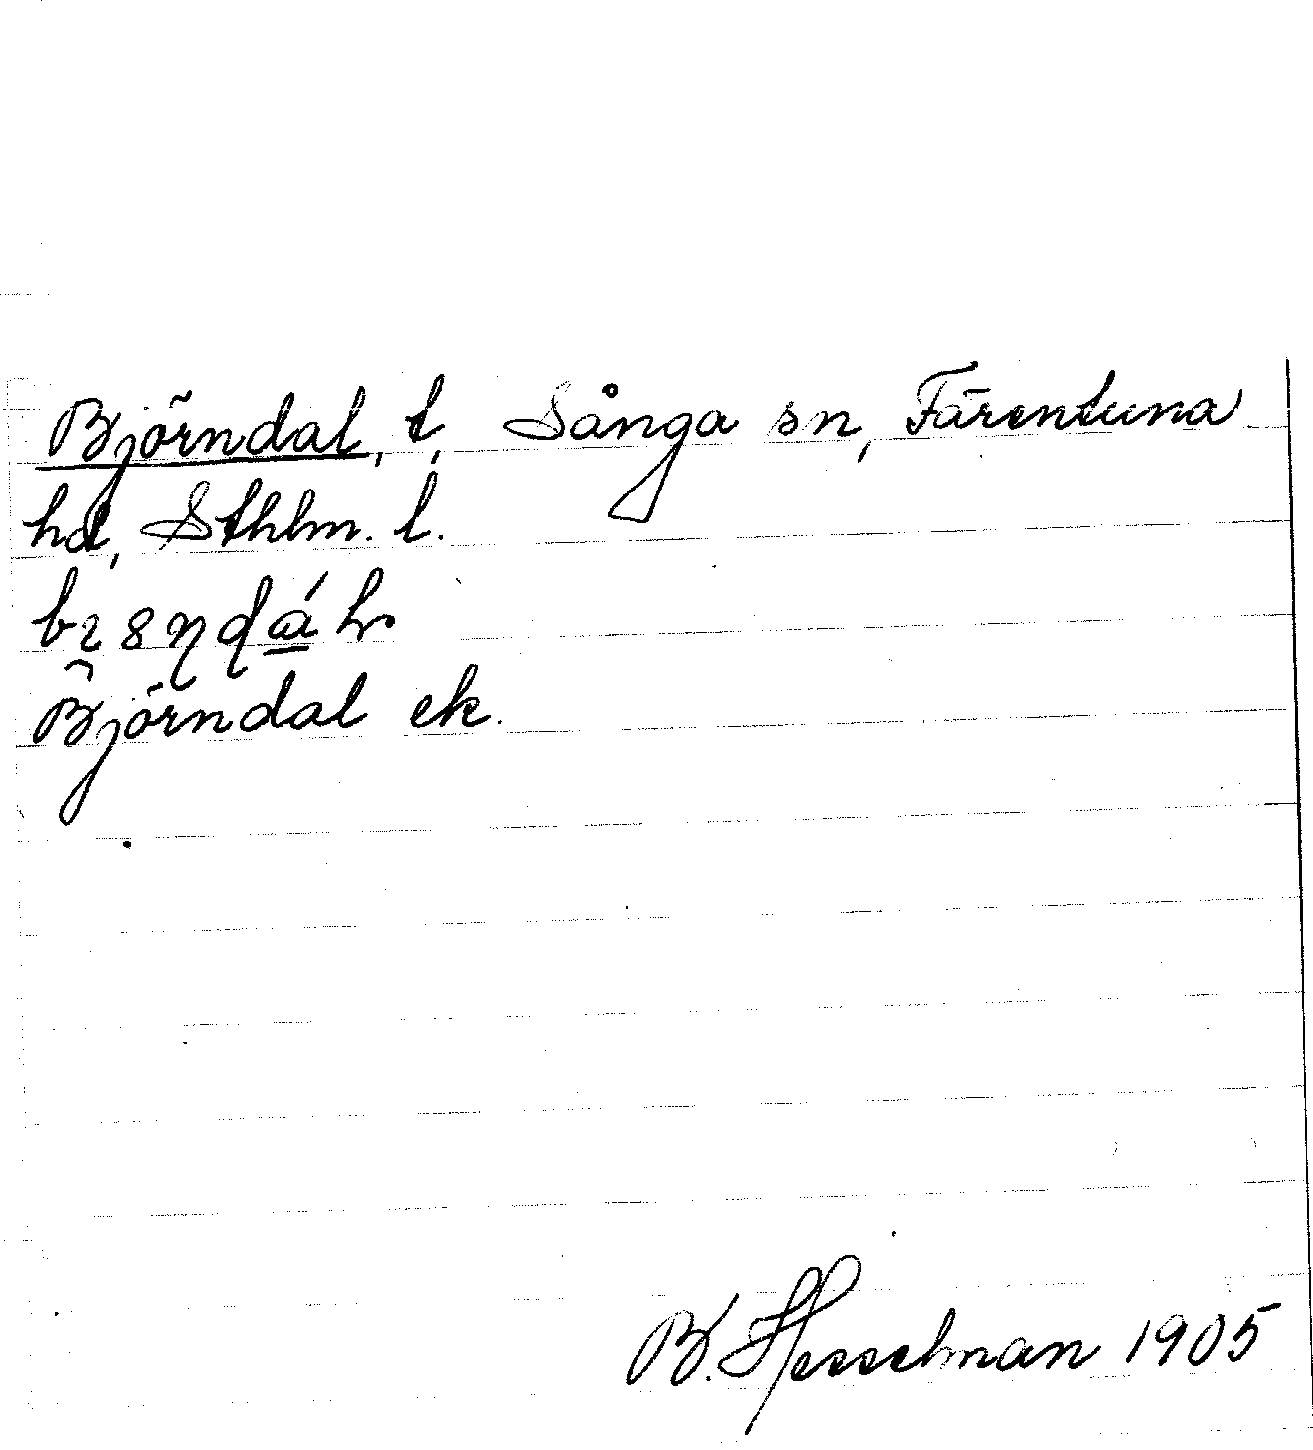 Björndal, t, Sånga sn, Färentuna
hd, Sthlm. l.
Björndal ek.
B. Hesselman 1905